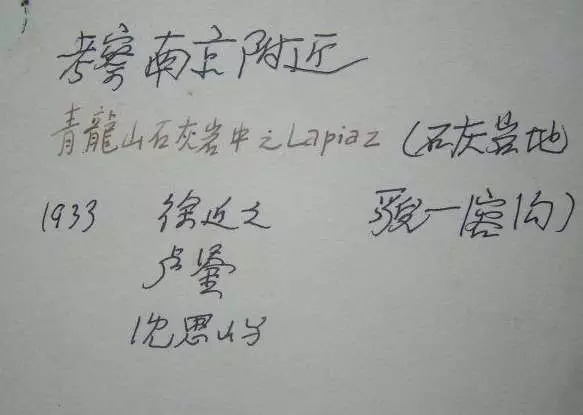 考察南京附近
青龍山石灰岩中之Lapiaz (石灰岩地
貌一溶沟)
1933 徐近之
卢鋈
沈思屿